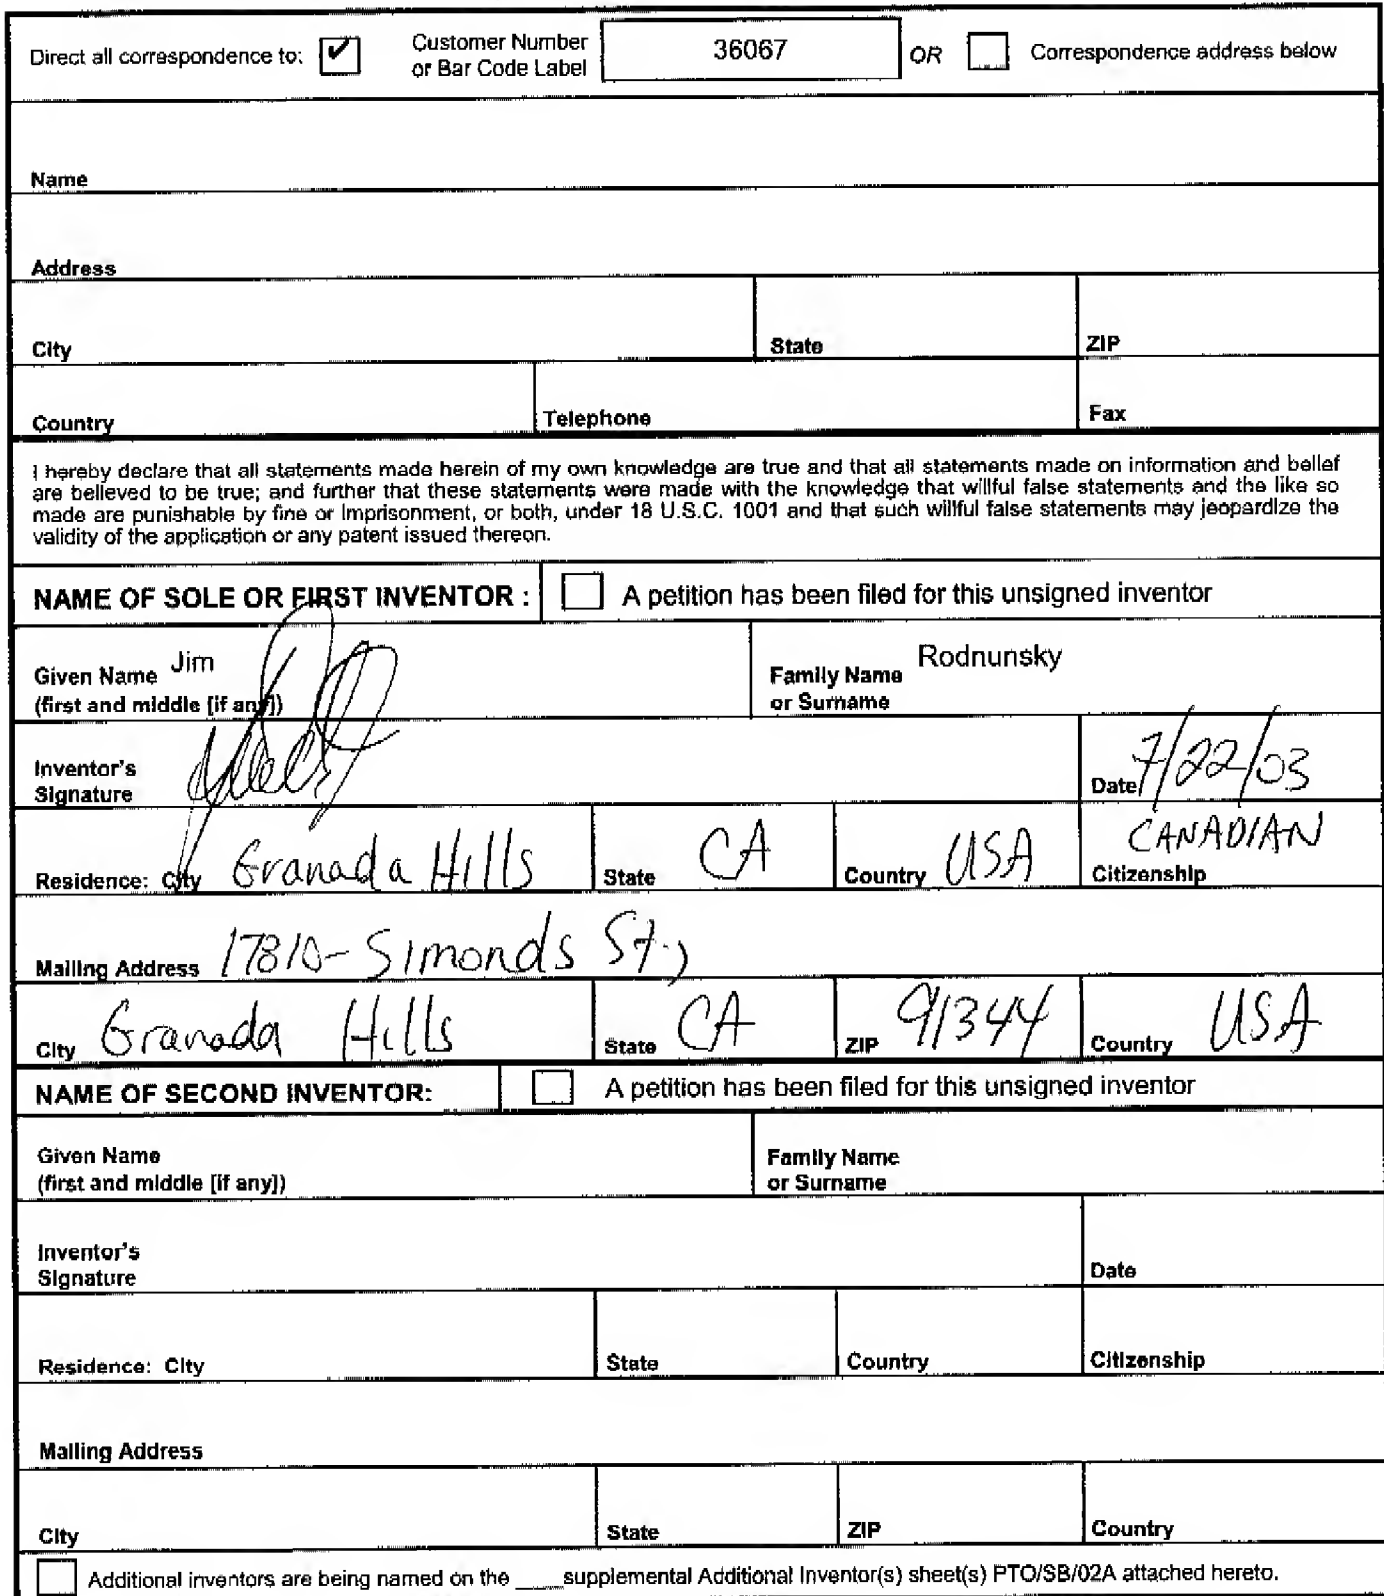 Direct all correspondence to: ✔ Customer Number or Bar Code Label 36067 OR Correspondence address below
Name
Address
City State ZIP
Country Telephone Fax
I hereby declare that all statements made herein of my own knowledge are true and that all statements made on information and belief
are believed to be true; and further that these statements were made with the knowledge that willful false statements and the like so
made are punishable by fine or imprisonment, or both, under 18 U.S.C. 1001 and that such willful false statements may jeopardize the
validity of the application or any patent issued thereon.
NAME OF SOLE OR FIRST INVENTOR : A petition has been filed for this unsigned inventor
Given Name Jim Family Name Rodnunsky
(first and middle [if any]) or Surname
Inventor's
Signature Date 7/22/03
Residence: City Granada Hills State CA Country USA CANADIAN Citizenship
Mailing Address 17810- Simonds St.,
City Granada Hills State CA ZIP 91344 Country USA
NAME OF SECOND INVENTOR: A petition has been filed for this unsigned inventor
Given Name Family Name
(first and middle [if any]) or Surname
Inventor's
Signature Date
Residence: City State Country Citizenship
Mailing Address
City State ZIP Country
Additional inventors are being named on the ____supplemental Additional Inventor(s) sheet(s) PTO/SB/02A attached hereto.